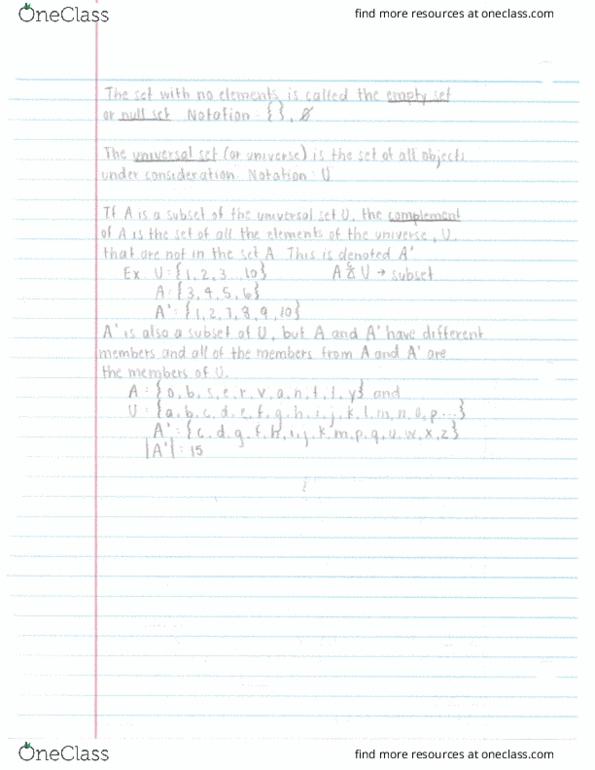 OneClass
find more resources at oneclass.com
The set with no elements is called the empty set
or null set Notation: { }, ∅
The universal set (or universe) is the set of all objects
under consideration. Notation: U
If A is a subset of the universal set U, the complement
of A is the set of all the elements of the universe, U,
that are not in the set A. This is denoted A'
Ex. U: {1, 2, 3 ...10} A ⊆ U → subset
A: {3, 4, 5, 6}
A': {1, 2, 7, 8, 9, 10}
A' is also a subset of U, but A and A' have different
members and all of the members from A and A' are
the members of U.
A = {o, b, s, e, r, v, a, n, t, l, y} and
U = {a, b, c, d, e, f, g, h, i, j, k, l, m, n, o, p...}
A' = {c, d, g, f, h, i, j, k, m, p, q, u, w, x, z}
|A'| = 15
OneClass
find more resources at oneclass.com